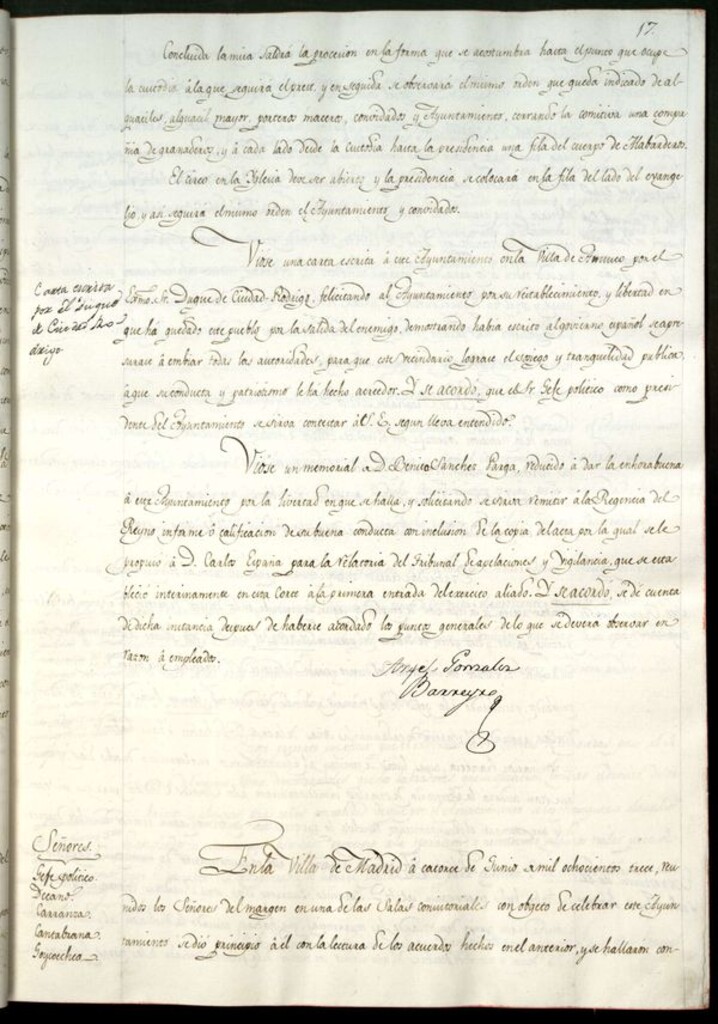 17.
Concluida la misa saldrá la procesion en la forma que se acostumbra hasta el punto que ocupe
la custodia á la que seguirá el preste, y en seguida se observará el mismo orden que queda indicado de al-
guaciles, alguacil mayor, porteros maceros, convidados y Ayuntamiento, cerrando la comitiva una compa-
ñia de granaderos, y á cada lado desde la custodia hasta la presidencia una fila del cuerpo de Alabarderos.
El circo en la Yglesia deve ser abierto y la presidencia se colocará en la fila del lado del evange-
lio, y asi seguirá el mismo orden el Ayuntamiento y convidados.
Carta escrita
por El Duque
de Ciudad Ro-
drigo
Viose una carta escrita á este Ayuntamiento en la Villa de por el
Exmo. Sr. Duque de Ciudad-Rodrigo, felicitando al Ayuntamiento por su restablecimiento, y libertad en
que ha quedado este pueblo por la salida del enemigo, demostrando habia escrito al govierno español se apre-
surase á embiar todas las autoridades, para que este vecindario lograse el sosiego y tranquilidad publica,
á que su conducta y patriotismo le ha hecho acreedor. Y se acordó, que el Sr. Gefe politico como presi-
dente del Ayuntamiento se sirva contestar á S. E. segun lleva entendido.
Viose un memorial de D. Benito Sanchez Parga, reducido á dar la enhorabuena
á este Ayuntamiento por la libertad en que se halla, y solicitando se sirva remitir á la Regencia del
Reyno informe ó calificacion de su buena conducta con inclusion de la copia del acta por la qual se le
propuso á D. Carlos España para la relatoria del Tribunal de apelaciones y Vigilancia, que se esta-
blecio interinamente en esta Corte á la primera entrada del exercito aliado. Y se acordó, se dé cuenta
de dicha instancia despues de haberse acordado los puntos generales de lo que se deverá observar en
razon á empleados.
Angel Gonzalez
Barreyro
Señores.
Gefe politico.
Decano.
Carranza.
Cantabrana.
Goycoechea
En la Villa de Madrid á catorce de Junio de mil ochocientos trece, reu-
nidos los Señores del margen en una de las Salas consistoriales con objeto de celebrar este Ayun-
tamiento se dió principio á él con la lectura de los acuerdos hechos en el anterior, y se hallaron con-